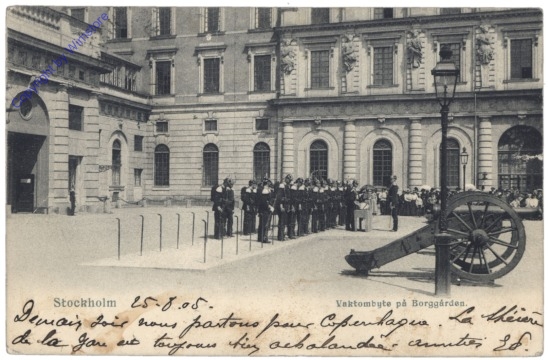 Stockholm 25-8 05. Vaktombyte på Borggården.
Demain soir nous partons pour Copenhague. La
de la gare est toujours bien achalandée amitiés